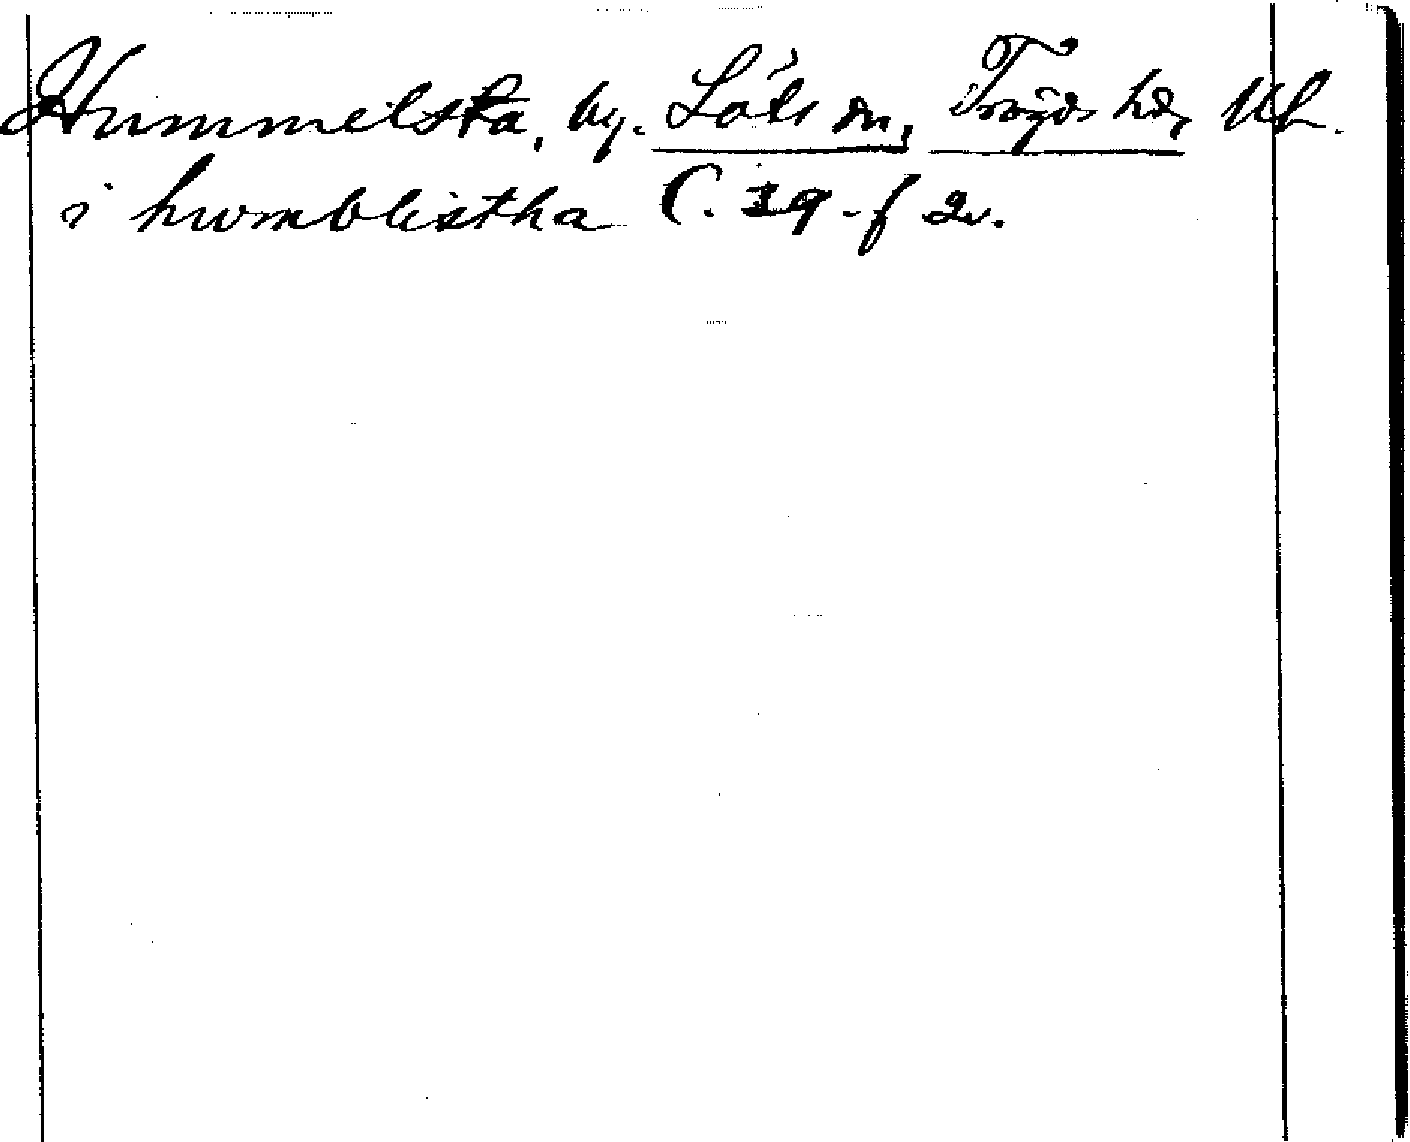 Hummelsta, by. Löts sn, Trögds hd, Upl.
i humblistha C. 39. f 2v.